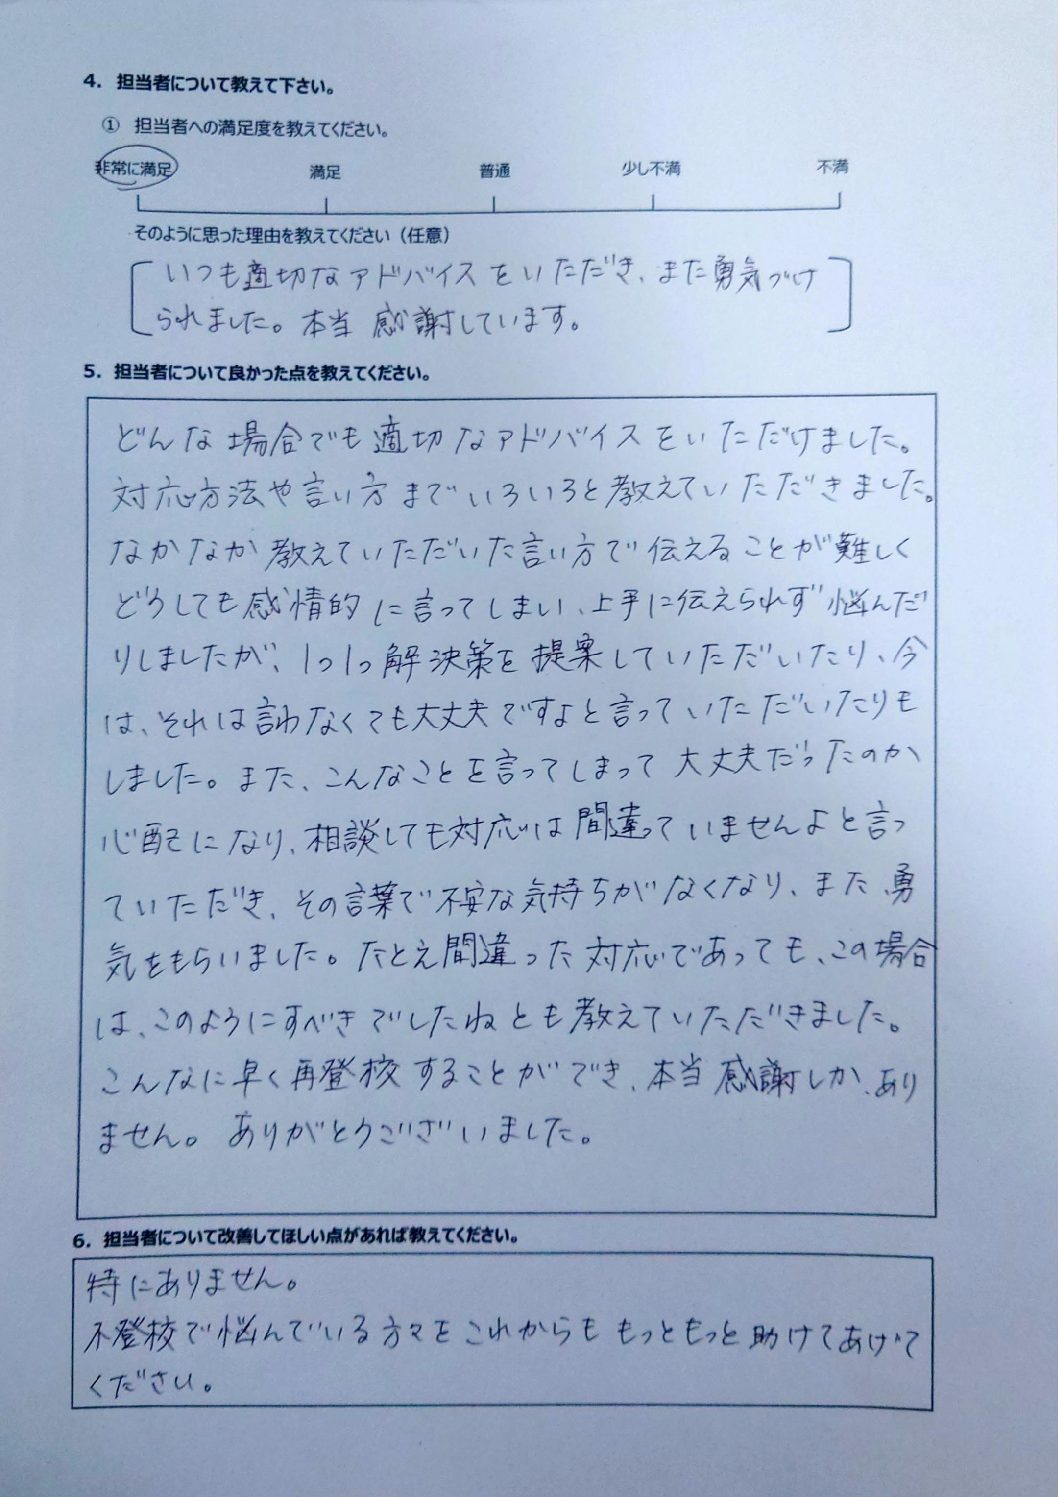 4. 担当者について教えて下さい。
① 担当者への満足度を教えてください。
非常に満足 満足 普通 少し不満 不満
そのように思った理由を教えてください（任意）
いつも適切なアドバイスをいただき、また勇気づけ
られました。本当 感謝しています。
5. 担当者について良かった点を教えてください。
どんな場合でも適切なアドバイスをいただけました。
対応方法や言い方までいろいろと教えていただきました。
なかなか教えていただいた言い方で伝えることが難しく
どうしても感情的に言ってしまい、上手に伝えられず悩んだ
りしましたが、1つ1つ解決策を提案していただいたり、今
は、それは言わなくても大丈夫ですよと言っていただいたりも
しました。また、こんなことを言ってしまって大丈夫だったのか
心配になり、相談しても対応は間違っていませんよと言っ
ていただき、その言葉で不安な気持ちがなくなり、また、勇
気をもらいました。たとえ間違った対応であっても、この場合
は、このようにすべきでしたねとも教えていただきました。
こんなに早く再登校することができ、本当 感謝しか、あり
ません。ありがとうございました。
6. 担当者について改善してほしい点があれば教えてください。
特にありません。
不登校で悩んでいる方々をこれからももっともっと助けてあげて
ください。